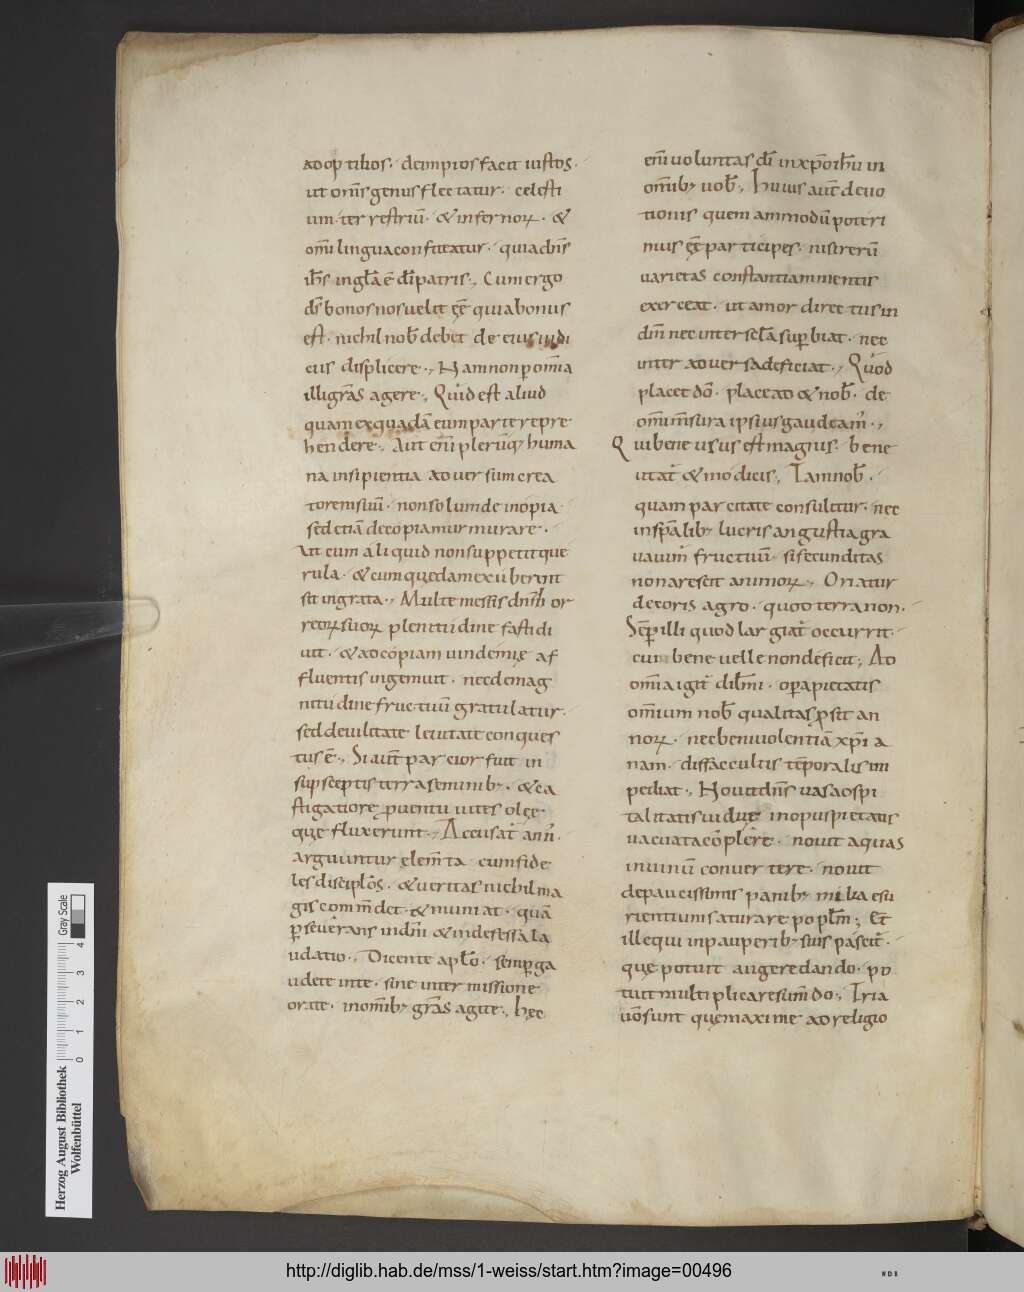 adoptiuos· deimpios facit iustos·
ut om̅s genus flectatur· celesti
um· terrestriu̅· & infernoꝝ· &
om̅i lingua confiteatur· quia dn̅s
ih̅s in gl̅a e̅ di̅ patris·, Cum ergo
ds̅ bonos nos uelit ee̅ quia bonus
est· nichil nob̅ debet de eius iudi
ciis displicere·, Nam non ꝑ om̅ia
illi gr̅as agere·, Quid est aliud
quam ex quada̅ eum parte repre
hendere·, Aut eni̅ pleru̅q; huma
na insipientia aduersum crea
torem siuu̅· non solum de inopia
sed etia̅ de copia murmurare·
Ut cum aliquid non suppetit que
rula· & cum quedam exuberint
sit ingrata·, Multe messis dn̅s hor
reoꝝ suoꝝ plenitudine fastidi
uit· & ad copiam uindemię af
fluentis ingemuit· nec de mag
nitudine fructuu̅ gratulatur·
sed de uilitate leuitate conques
tus e̅·, Si aute̅ parcior fuit in
supsceptis terra seminib;· & ca
stigatiore ꝓuentu uites oleę
quę fluxerunt·, Accusat̅ ann̅·
arguuntur elem̅ta cum fide
les discipl̅os· & ueritas nichil ma
gis com̅m̅det· & muniat· qua̅
ꝑseuerans in dm̅ & indefessa la
udatio·, Dicente apl̅o· semper ga
udete inte· sine intermissione
orate· in omīb; gr̅as agite·, hęc
eni̅ uoluntas di̅ in xp̅o ih̅u in
omīb; uob̅·, Huius aut̅ deuo
tionis quemammodu̅ poteri
mus ee̅ participes· nisi reru̅
uarietas constantiam mentis
exerceat· ut amor directus in
dm̅ nec inter secl̅a suꝑbiat· nec
inter aduersa deficiat·, Quod
placet do̅· placeat & nob̅· de
om̅i m̅sura ipsius gaudeam̅·,
Qui bene usus est magnis· bene
utat̅ & modicis·, Tam nob̅·
quam parcitate consulitur· nec
in spa̅lib; lucris angustia gra
uauim̅ fructuu̅· si fecunditas
non arescit animoꝝ·, Oriatur
de coris agro· quod terra non·
Sem̅ꝑ illi quod largiat̅ occurrit·
cui bene uelle non deficit·, Ad
om̅ia igit̅ dil̅mi· oꝑa pietatis
om̅ium nob̅ qualitas ꝓsit an
noꝝ· nec beniuolentia̅ xp̅i a
nam· diffaccultis te̅poralis im
pediat·, Nouit dn̅s uasa ospi
talitatis ui duę in opus pietatis
uacuata co̅plere· nouit aquas
in uinu̅ conuertere· nouit
de paucissimis panib; milia esu
rientium saturare popl̅m·, Et
ille qui in pauperib; suis pascit̅·
quę potuit augere dando· po
tuit multiplicare sum̅do·, Tria
uo̅ sunt quę maxime ad religio
Herzog August Bibliothek
Wolfenbüttel
0 1 2 3 4
Gray Scale
http://diglib.hab.de/mss/1-weiss/start.htm?image=00496